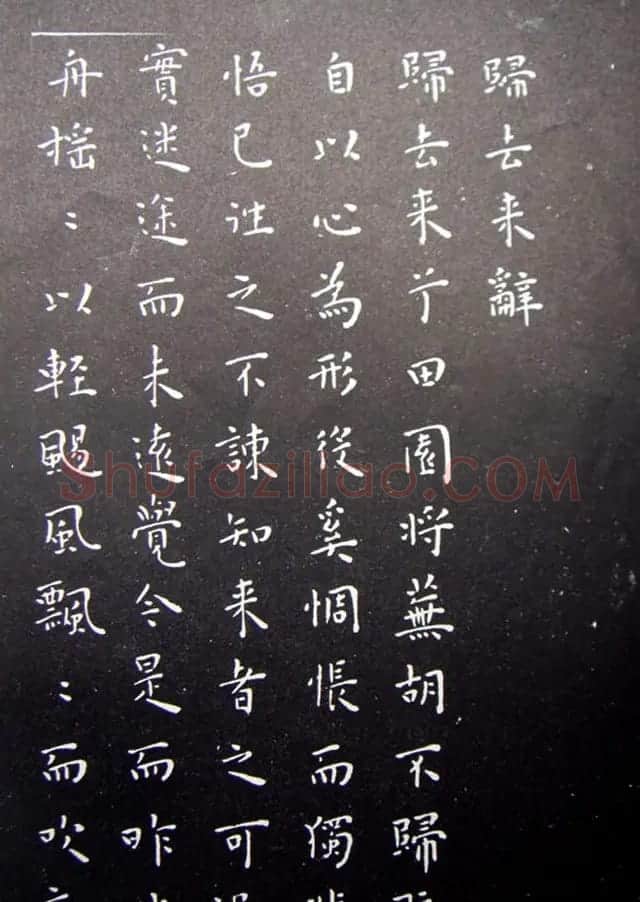 歸去来辭
歸去来兮田園将蕪胡不歸
自以心為形役奚惆悵而獨
悟已往之不諫知来者之可
實迷途而未遠覺今是而昨
舟摇〻以輕颺風飄〻而吹
Shufaziliao.COM